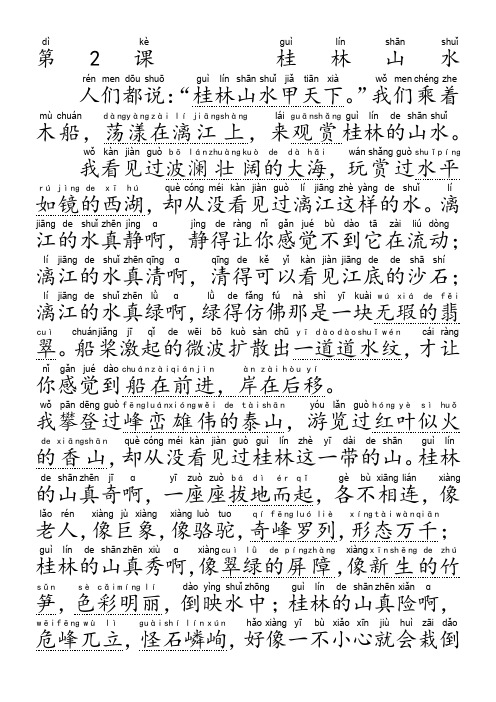 dì kè guì lín shān shuǐ
第 2 课 桂 林 山 水
rén men dōu shuō guì lín shān shuǐ jiǎ tiān xià wǒ men chéng zhe
人们都说：“桂林山水甲天下。”我们乘着
mù chuán dàngyàngzài lí jiāngshàng lái guānshǎng guì lín de shān shuǐ
木船，荡漾在漓江上，来观赏桂林的山水。
wǒ kàn jiàn guò bō lánzhuàngkuò de dà hǎi wán shǎng guò shuǐpíng
我看见过波澜壮阔的大海，玩赏过水平
rú jìng de xī hú què cóng méi kàn jiàn guò lí jiāng zhè yàng de shuǐ lí
如镜的西湖，却从没看见过漓江这样的水。漓
jiāng de shuǐ zhēn jìng ɑ jìng de ràng nǐ gǎn jué bù dào tā zài liú dòng
江的水真静啊，静得让你感觉不到它在流动；
lí jiāng de shuǐ zhēn qīng ɑ qīng de kě yǐ kàn jiàn jiāng de de shā shí
漓江的水真清啊，清得可以看见江底的沙石；
lí jiāng de shuǐ zhēn lǜ ɑ lǜ de fǎng fú nà shì yī kuài wú xiá de fěi
漓江的水真绿啊，绿得仿佛那是一块无瑕的翡
cuì chuánjiǎng jī qǐ de wēi bō kuò sàn chū yī dàodàoshuǐwén cái ràng
翠。船桨激起的微波扩散出一道道水纹，才让
nǐ gǎn jué dào chuánzàiqiánjìn àn zàihòuyí
你感觉到船在前进，岸在后移。
wǒ pān dēng guò fēngluánxióngwěi de tàishān yóu lǎn guò hóngyè sì huǒ
我攀登过峰峦雄伟的泰山，游览过红叶似火
de xiāngshān què cóng méi kàn jiàn guò guì lín zhè yī dài de shān guì lín
的香山，却从没看见过桂林这一带的山。桂林
de shān zhēn jī ɑ yī zuò zuò bá dì ér qǐ gè bù xiāng lián xiàng
的山真奇啊，一座座拔地而起，各不相连，像
lǎo rén xiàng jù xiàng xiàng luò tuo qí fēngluó liè xíngtàiwànqiān
老人，像巨象，像骆驼，奇峰罗列，形态万千；
guì lín de shān zhēn xiù ɑ xiàng cuì lǜ de píngzhàng xiàng xīnshēng de zhú
桂林的山真秀啊，像翠绿的屏障，像新生的竹
sǔn sè cǎimíng lí dào yìng shuǐ zhōng guì lín de shān zhēn xiǎn ɑ
笋，色彩明丽，倒映水中；桂林的山真险啊，
wēifēngwù lì guàishí línxún hǎo xiàng yī bù xiǎo xīn jiù huì zāi dǎo
危峰兀立，怪石嶙峋，好像一不小心就会栽倒